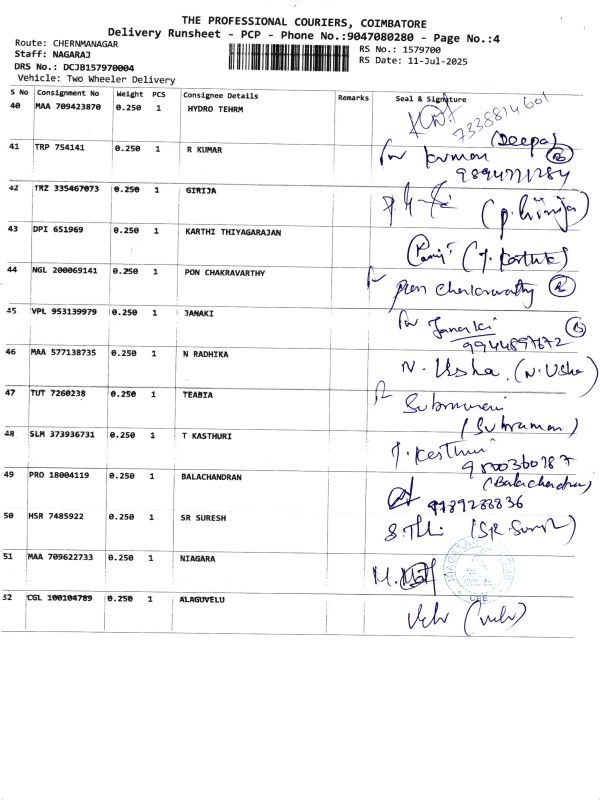 THE PROFESSIONAL COURIERS, COIMBATORE
Delivery Runsheet - PCP - Phone No.:9047080280 - Page No.:4
Route: CHERNMANAGAR
Staff: NAGARAJ
DRS No.: DCJB157970004
Vehicle: Two Wheeler Delivery
RS No.: 1579700
RS Date: 11-Jul-2025
S No Consignment No Weight PCS Consignee Details Remarks Seal & Signature
40 MAA 709423870 0.250 1 HYDRO TEHRM 7338814601
(Deepa)
41 TRP 754141 0.250 1 R KUMAR for kumar
9894771284
42 TRZ 335467073 0.250 1 GIRIJA (P. Girija)
43 DPI 651969 0.250 1 KARTHI THIYAGARAJAN
44 NGL 200069141 0.250 1 PON CHAKRAVARTHY pon chakravarthy
45 VPL 953139979 0.250 1 JANAKI for Janaki
9944897672
46 MAA 577138735 0.250 1 N RADHIKA N. Usha (N. Usha)
47 TUT 7260238 0.250 1 TEABIA Subramani
(Subraman)
48 SLM 373936731 0.250 1 T KASTHURI T. Kasthuri
49 PRO 18004119 0.250 1 BALACHANDRAN (Balachandran)
9789288836
50 HSR 7485922 0.250 1 SR SURESH (SR. Suresh)
51 MAA 709622733 0.250 1 NIAGARA
CBE
52 CGL 100104789 0.250 1 ALAGUVELU Velu (velu)